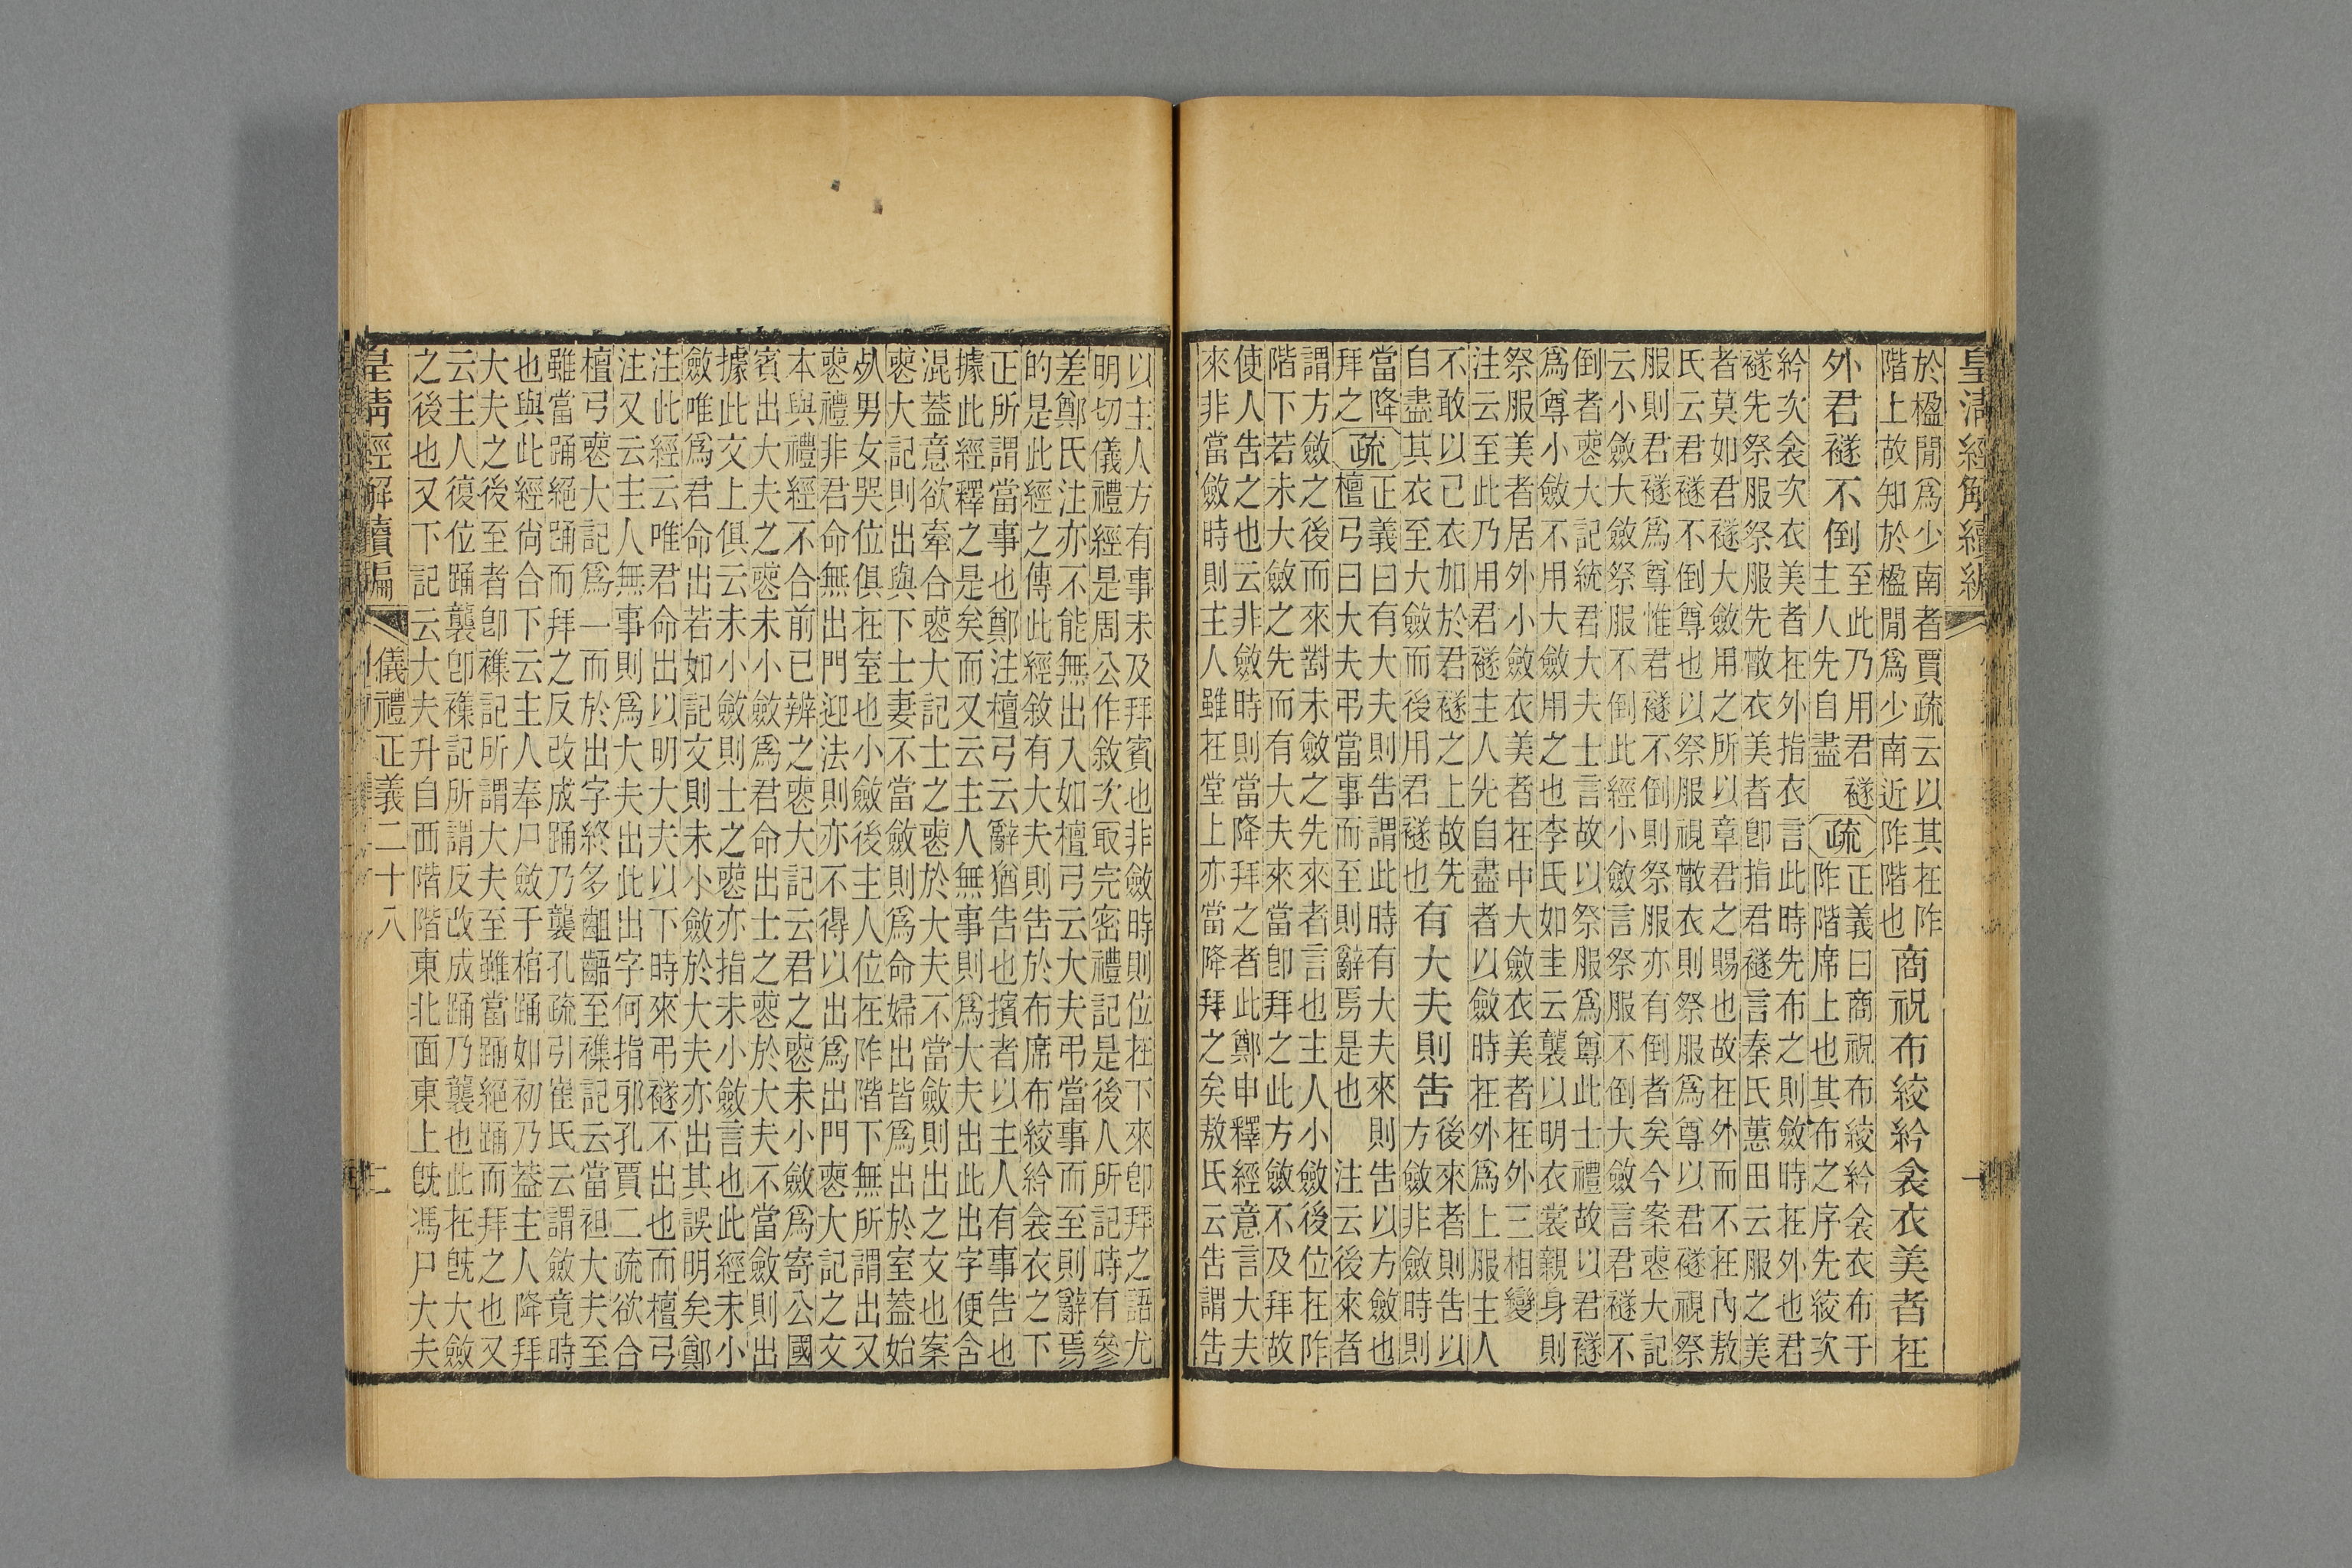 皇清經解續編
一
於楹閒爲少南者賈疏云以其在阼
階上故知於楹閒爲少南近阼階也
商祝布絞紟衾衣美者在
外君襚不倒
至此乃用君襚
主人先自盡
疏
正義曰商祝布絞紟衾衣布于
阼階席上也其布之序先絞次
紟次衾次衣美者在外指衣言此時先布之則斂時在外也君
襚先祭服祭服先散衣美者卽指君襚言秦氏蕙田云服之美
者莫如君襚大斂用之所以章君之賜也故在外而不在內敖
氏云君襚不倒尊也以祭服視散衣則祭服爲尊以君襚視祭
服則君襚爲尊惟君襚不倒則祭服亦有倒者矣今案喪大記
云小斂大斂祭服不倒此經小斂言祭服不倒大斂言君襚不
倒者喪大記統君大夫士言故以祭服爲尊此士禮故以君襚
爲尊小斂不用大斂用之也李氏如圭云襲以明衣裳親身則
祭服美者居外小斂衣美者在中大斂衣美者在外三相變
注云至此乃用君襚主人先自盡者以斂時在外爲上服主人
不敢以己衣加於君襚之上故先
自盡其衣至大斂而後用君襚也
有大夫則告
後來者則告以
方斂非斂時則
當降
拜之
疏
正義曰有大夫則告謂此時有大夫來則告以方斂也
檀弓曰大夫弔當事而至則辭焉是也 注云後來者
謂方斂之後而來對未斂之先來者言也主人小斂後位在阼
階下若未大斂之先而有大夫來當卽拜之此方斂不及拜故
使人告之也云非斂時則當降拜之者此鄭申釋經意言大夫
來非當斂時則主人雖在堂上亦當降拜之矣敖氏云告謂告
以主人方有事未及拜賓也非斂時則位在下來卽拜之語尤
明切儀禮經是周公作敘次最完密禮記是後人所記時有參
差鄭氏注亦不能無出入如檀弓云大夫弔當事而至則辭焉
的是此經之傳此經敘有大夫則告於布席布絞紟衾衣之下
正所謂當事也鄭注檀弓云辭猶告也擯者以主人有事告也
據此經釋之是矣而又云主人無事則爲大夫出此出字便含
混蓋意欲牽合喪大記士之喪於大夫不當斂則出之文也案
喪大記則出與下士妻不當斂則爲命婦出皆爲出於室蓋始
死男女哭位俱在室也小斂後主人位在阼階下無所謂出又
喪禮非君命無出門迎法則亦不得以出爲出門喪大記之文
本與禮經不合前已辨之喪大記云君之喪未小斂爲寄公國
賓出大夫之喪未小斂爲君命出士之喪於大夫不當斂則出
據此文上俱云未小斂則士之喪亦指未小斂言也此經未小
斂唯爲君命出若如記文則未小斂於大夫亦出其誤明矣鄭
注此經云唯君命出以明大夫以下時來弔襚不出也而檀弓
注又云主人無事則爲大夫出此出字何指邪孔賈二疏欲合
檀弓喪大記爲一而於出字終多齟齬至襍記云當袒大夫至
雖當踊絕踊而拜之反改成踊乃襲孔疏引崔氏云謂斂竟時
也與此經尚合下云主人奉尸斂于棺踊如初乃蓋主人降拜
大夫之後至者卽襍記所謂大夫至雖當踊絕踊而拜之也又
云主人復位踊襲卽襍記所謂反改成踊乃襲也此在旣大斂
之後也又下記云大夫升自西階階東北面東上旣馮尸大夫
皇清經解續編
儀禮正義二十八
二